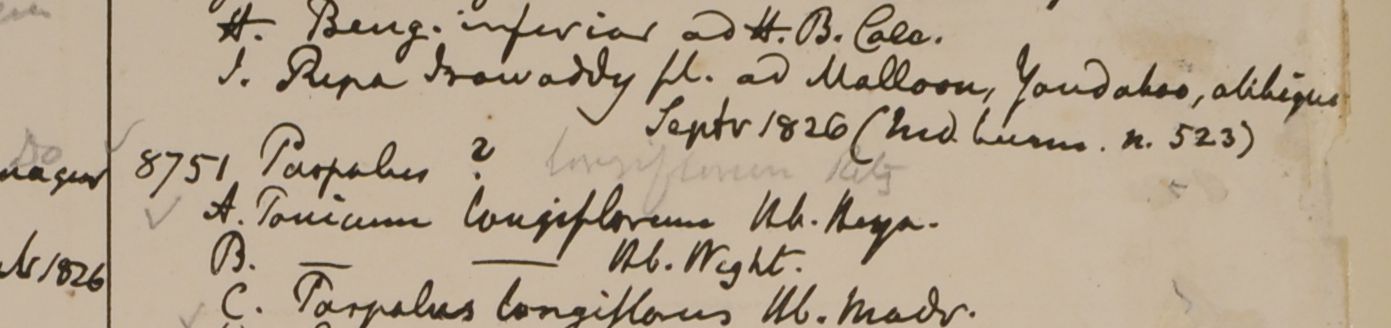 H. Beng. inferior ad H. B. Calc.
I. Ripa Irawaddy fl. ad Malloon, Yandaboo, alibique
Septr 1826 (Ind. burm. n. 523)
8751 Paspalus ? longiflorum Retz
A. Panicum longiflorum Hb. Heyn.
B. — — Hb. Wight.
C. Paspalus longiflorus Hb. Madr.
1826